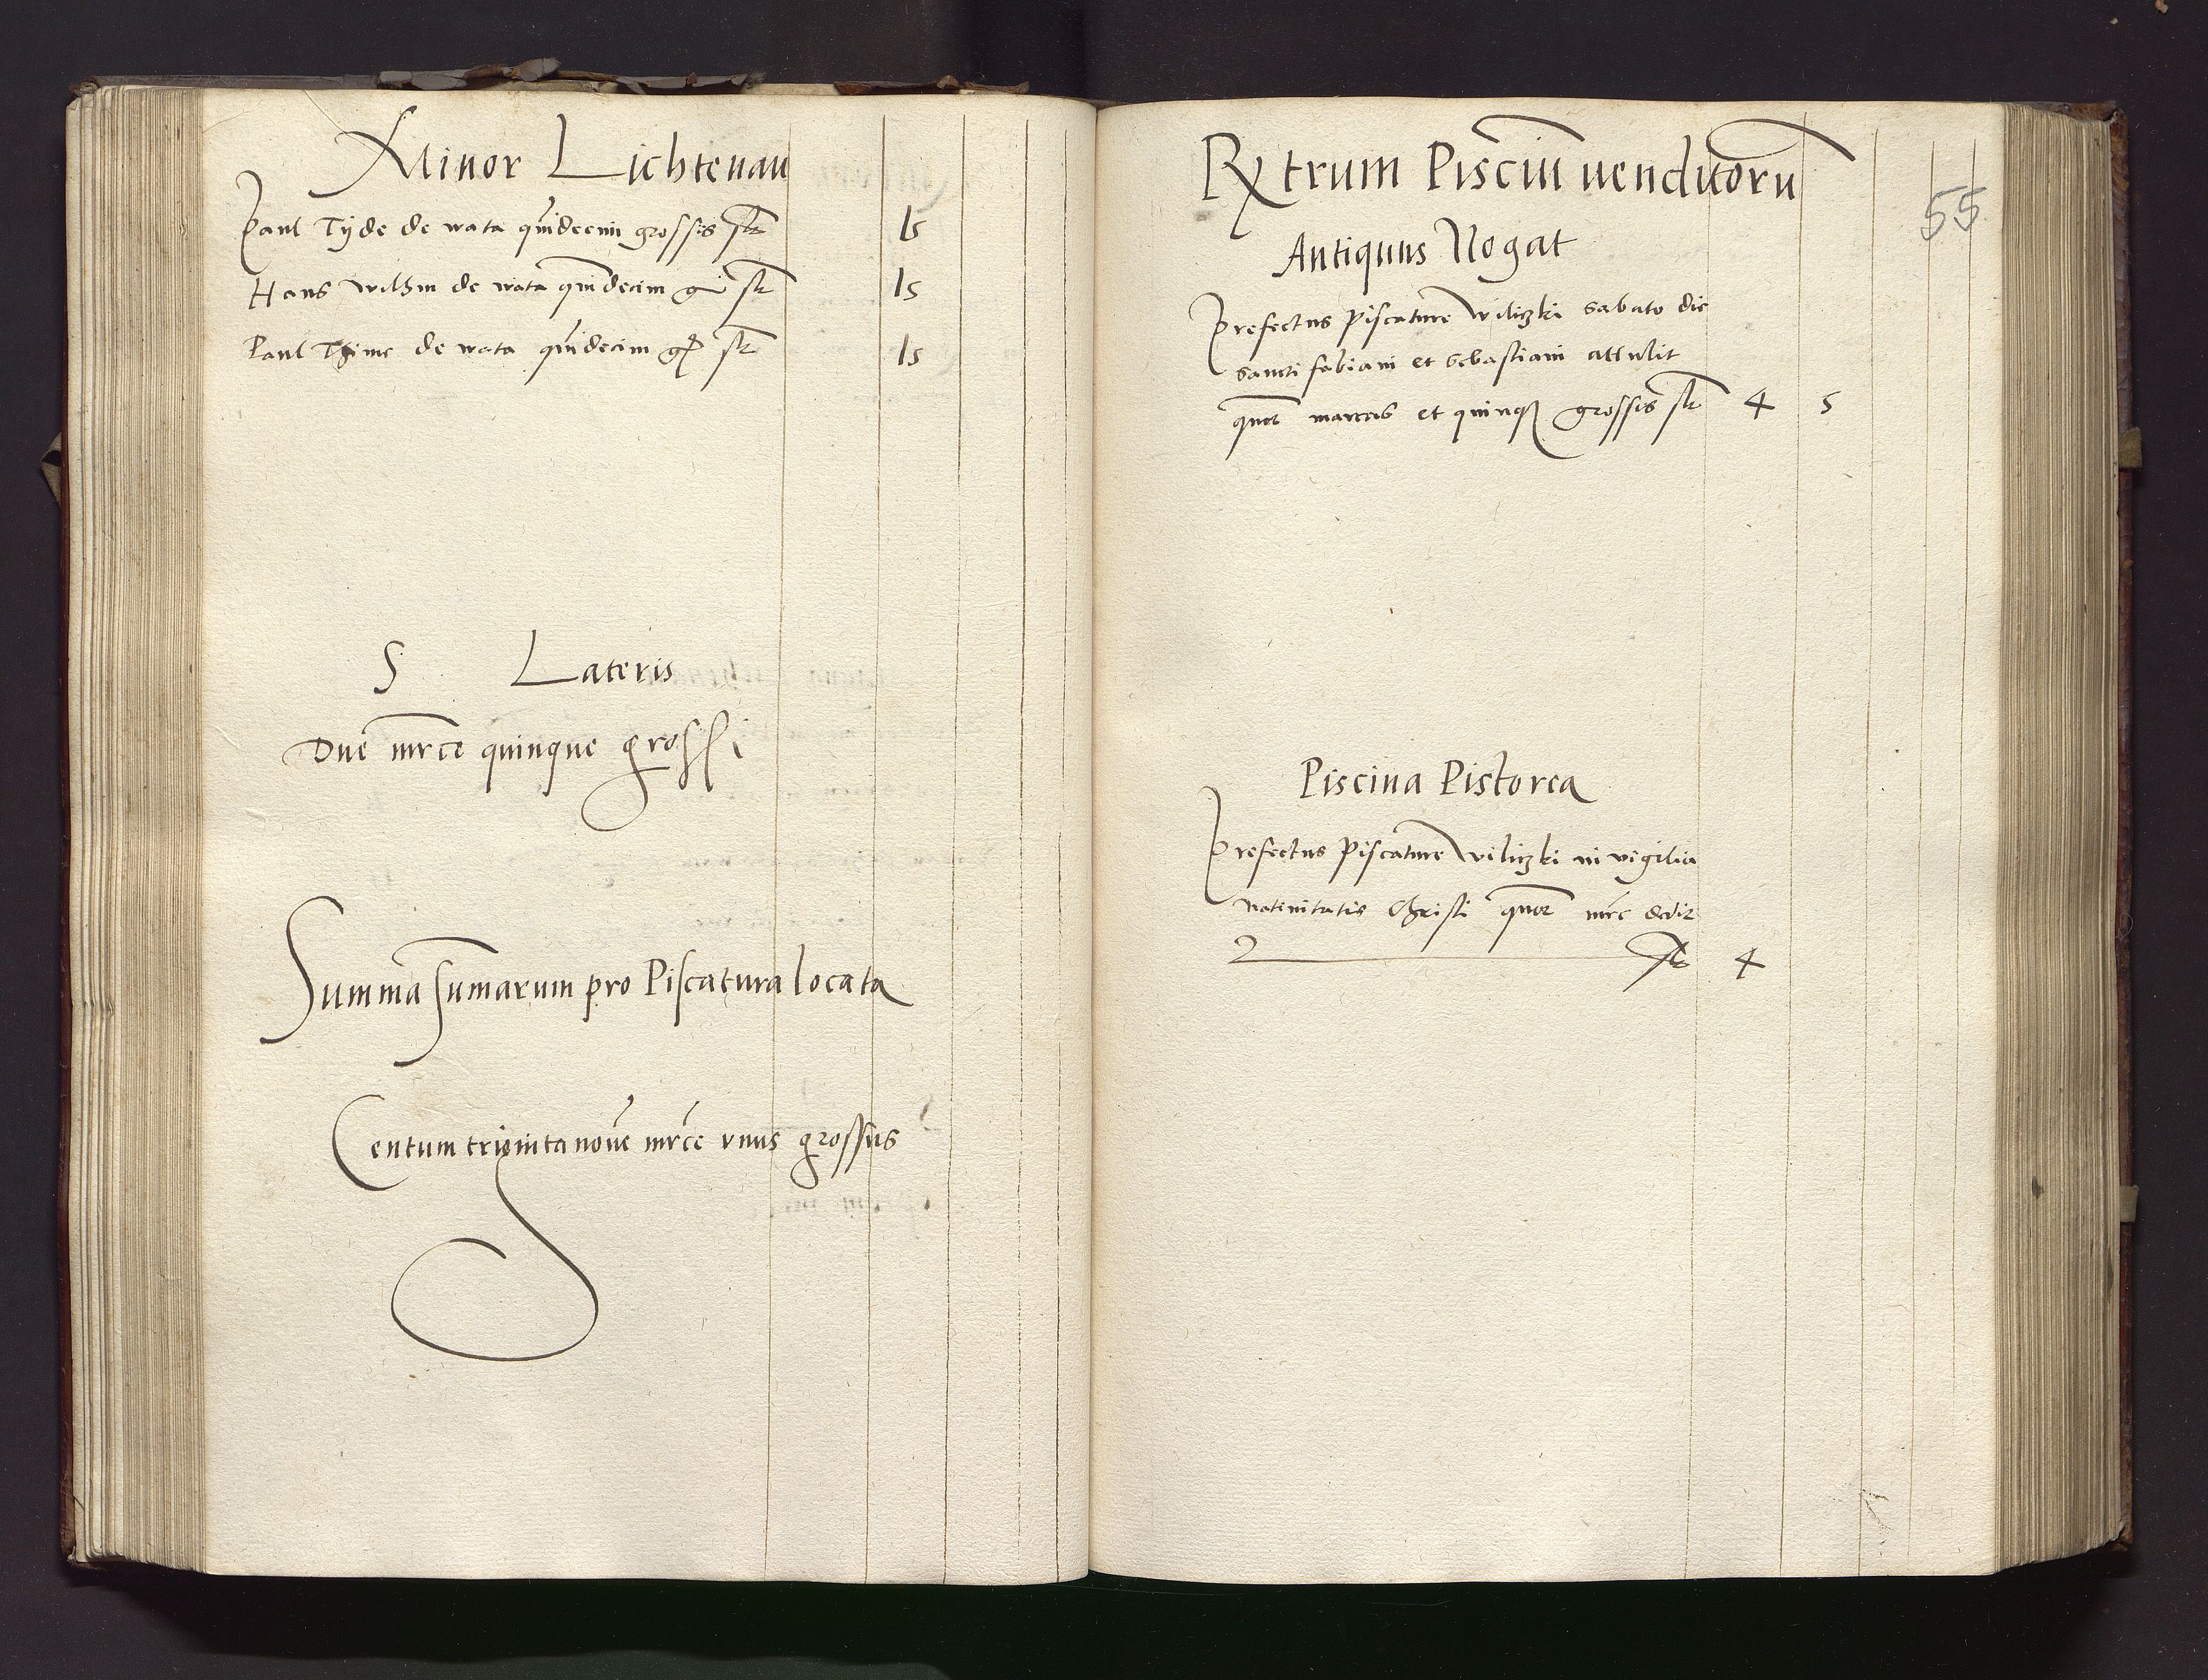 Minor Lichtenau
Paul Tyde de wata quīdecim grossis
15
Hans Wilhm de wata quīdecim
15
Paul Thime de wata quīdecim
15
S Lateris
Due mrce quinque grossi
Summa sūmarum pro Piscatura locata
Centum triginta novē mrce vnus grossus
55
Rxtrum Pisciū venditorū
Antiquus Nogat
Prefectus piscature Wiliczki sabato die
sancti fabiani et sebastiani attulit
quor marcas et quinq grossis
4 5
Piscina Pistorea
Prefectus piscature Wiliczki in vigilia
nativitatis Christi quor mrc dedit
4